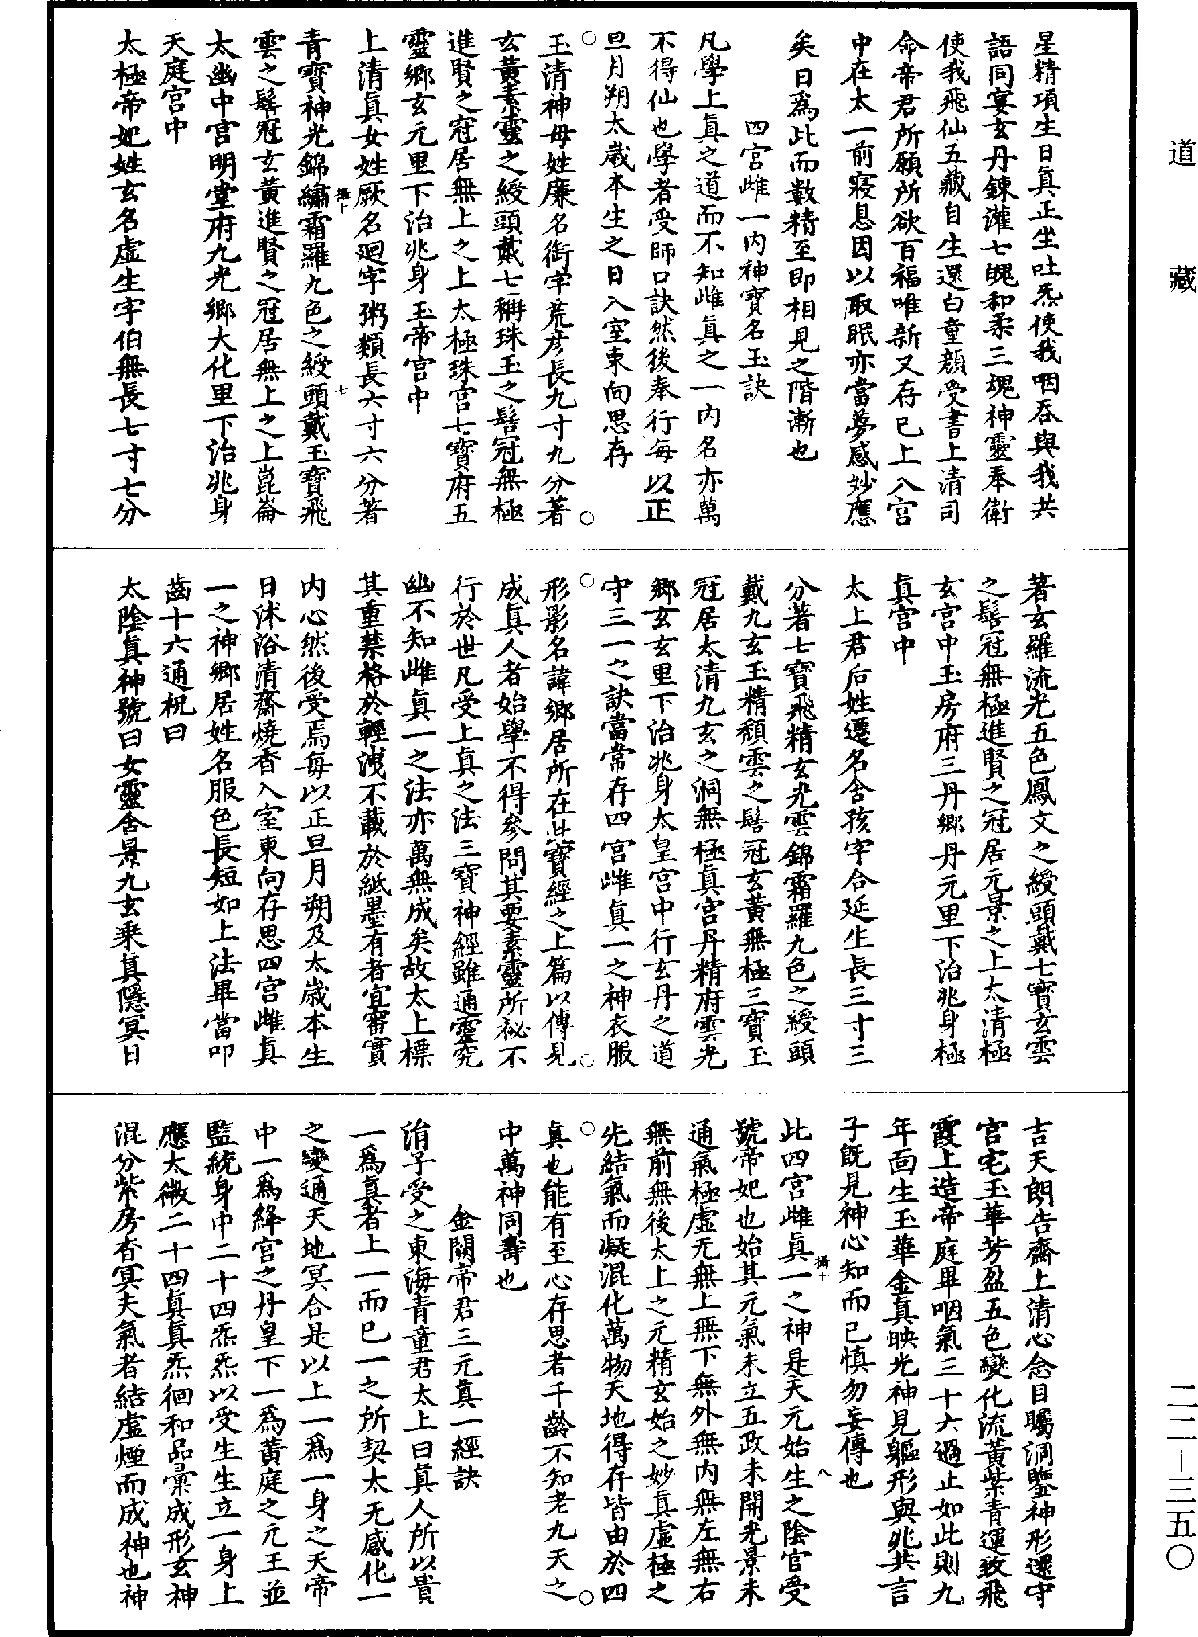 道藏
二二—三五〇
星精項生日真正坐吐炁使我咽吞與我共
語同宴玄丹鍊灌七魄和柔三魂神靈奉衛
使我飛仙五藏自生還白童顏受書上清司
命帝君所願所欲百福唯新又存已上入宮
中在太一前寢息因以取眠亦當夢感妙應
矣日為此而數精至即相見之階漸也
四宮雌一內神寶名玉訣
凡學上真之道而不知雌真之一內名亦萬
不得仙也學者受師口訣然後奉行每以正
旦月朔太歲本生之日入室東向思存
玉清神母姓廉名銜字荒彥長九寸九分著
玄黃素靈之綬頭戴七稱珠玉之髻冠無極
進賢之冠居無上之上太極珠宮七寶府五
靈鄉玄元里下治兆身玉帝宮中
上清真女姓厥名迴字粥類長六寸六分著
青寶神光錦繡霜羅九色之綬頭戴玉寶飛
雲之髻冠玄黃進賢之冠居無上之上崑崙
太幽中宮明堂府九光鄉大化里下治兆身
天庭宮中
太極帝妃姓玄名虛生字伯無長七寸七分
著玄羅流光五色鳳文之綬頭戴七寶玄雲
之髻冠無極進賢之冠居元景之上太清極
玄宮中玉房府三丹鄉丹元里下治兆身極
真宮中
太上君后姓遷名含孩字合延生長三寸三
分著七寶飛精玄光雲錦霜羅九色之綬頭
戴九玄玉精頹雲之髻冠玄黃無極三寶玉
冠居太清九玄之洞無極真宮丹精府雲光
鄉玄玄里下治兆身太皇宮中行玄丹之道
守三一之訣當常存四宮雌真一之神衣服
形影名諱鄉居所在此寶經之上篇以傳見
成真人者始學不得參問其要素靈所祕不
行於世凡受上真之法三寶神經雖通靈究
幽不知雌真一之法亦萬無成矣故太上標
其重禁格於輕洩不載於紙墨有者宜審實
內心然後受焉每以正旦月朔及太歲本生
日沐浴清齋燒香入室東向存思四宮雌真
一之神鄉居姓名服色長短如上法畢當叩
齒十六通祝曰
太陰真神號曰女靈含景九玄乘真隱冥日
吉天朗告齋上清心念目矚洞鑒神形還守
宮宅玉華芳盈五色變化流黃紫青運致飛
霞上造帝庭畢咽氣三十六過止如此則九
年面生玉華金真映光神見軀形與兆共言
子既見神心知而已慎勿妄傳也
此四宮雌真一之神是天元始生之陰官受
號帝妃也始其元氣未立五政未開光景未
通氣極虛无無上無下無外無內無左無右
無前無後太上之元精玄始之妙真虛極之
先結氣而凝混化萬物天地得存皆由於四
真也能有至心存思者千齡不知老九天之
中萬神同壽也
金闕帝君三元真一經訣
涓子受之東海青童君太上曰真人所以貴
一為真者上一而已一之所契太无感化一
之變通天地冥合是以上一為一身之天帝
中一為絳宮之丹皇下一為黃庭之元王並
監統身中二十四炁炁以受生生立一身上
應太微二十四真真炁徊和品彙成形玄神
混分紫房杳冥夫氣者結虛煙而成神也神